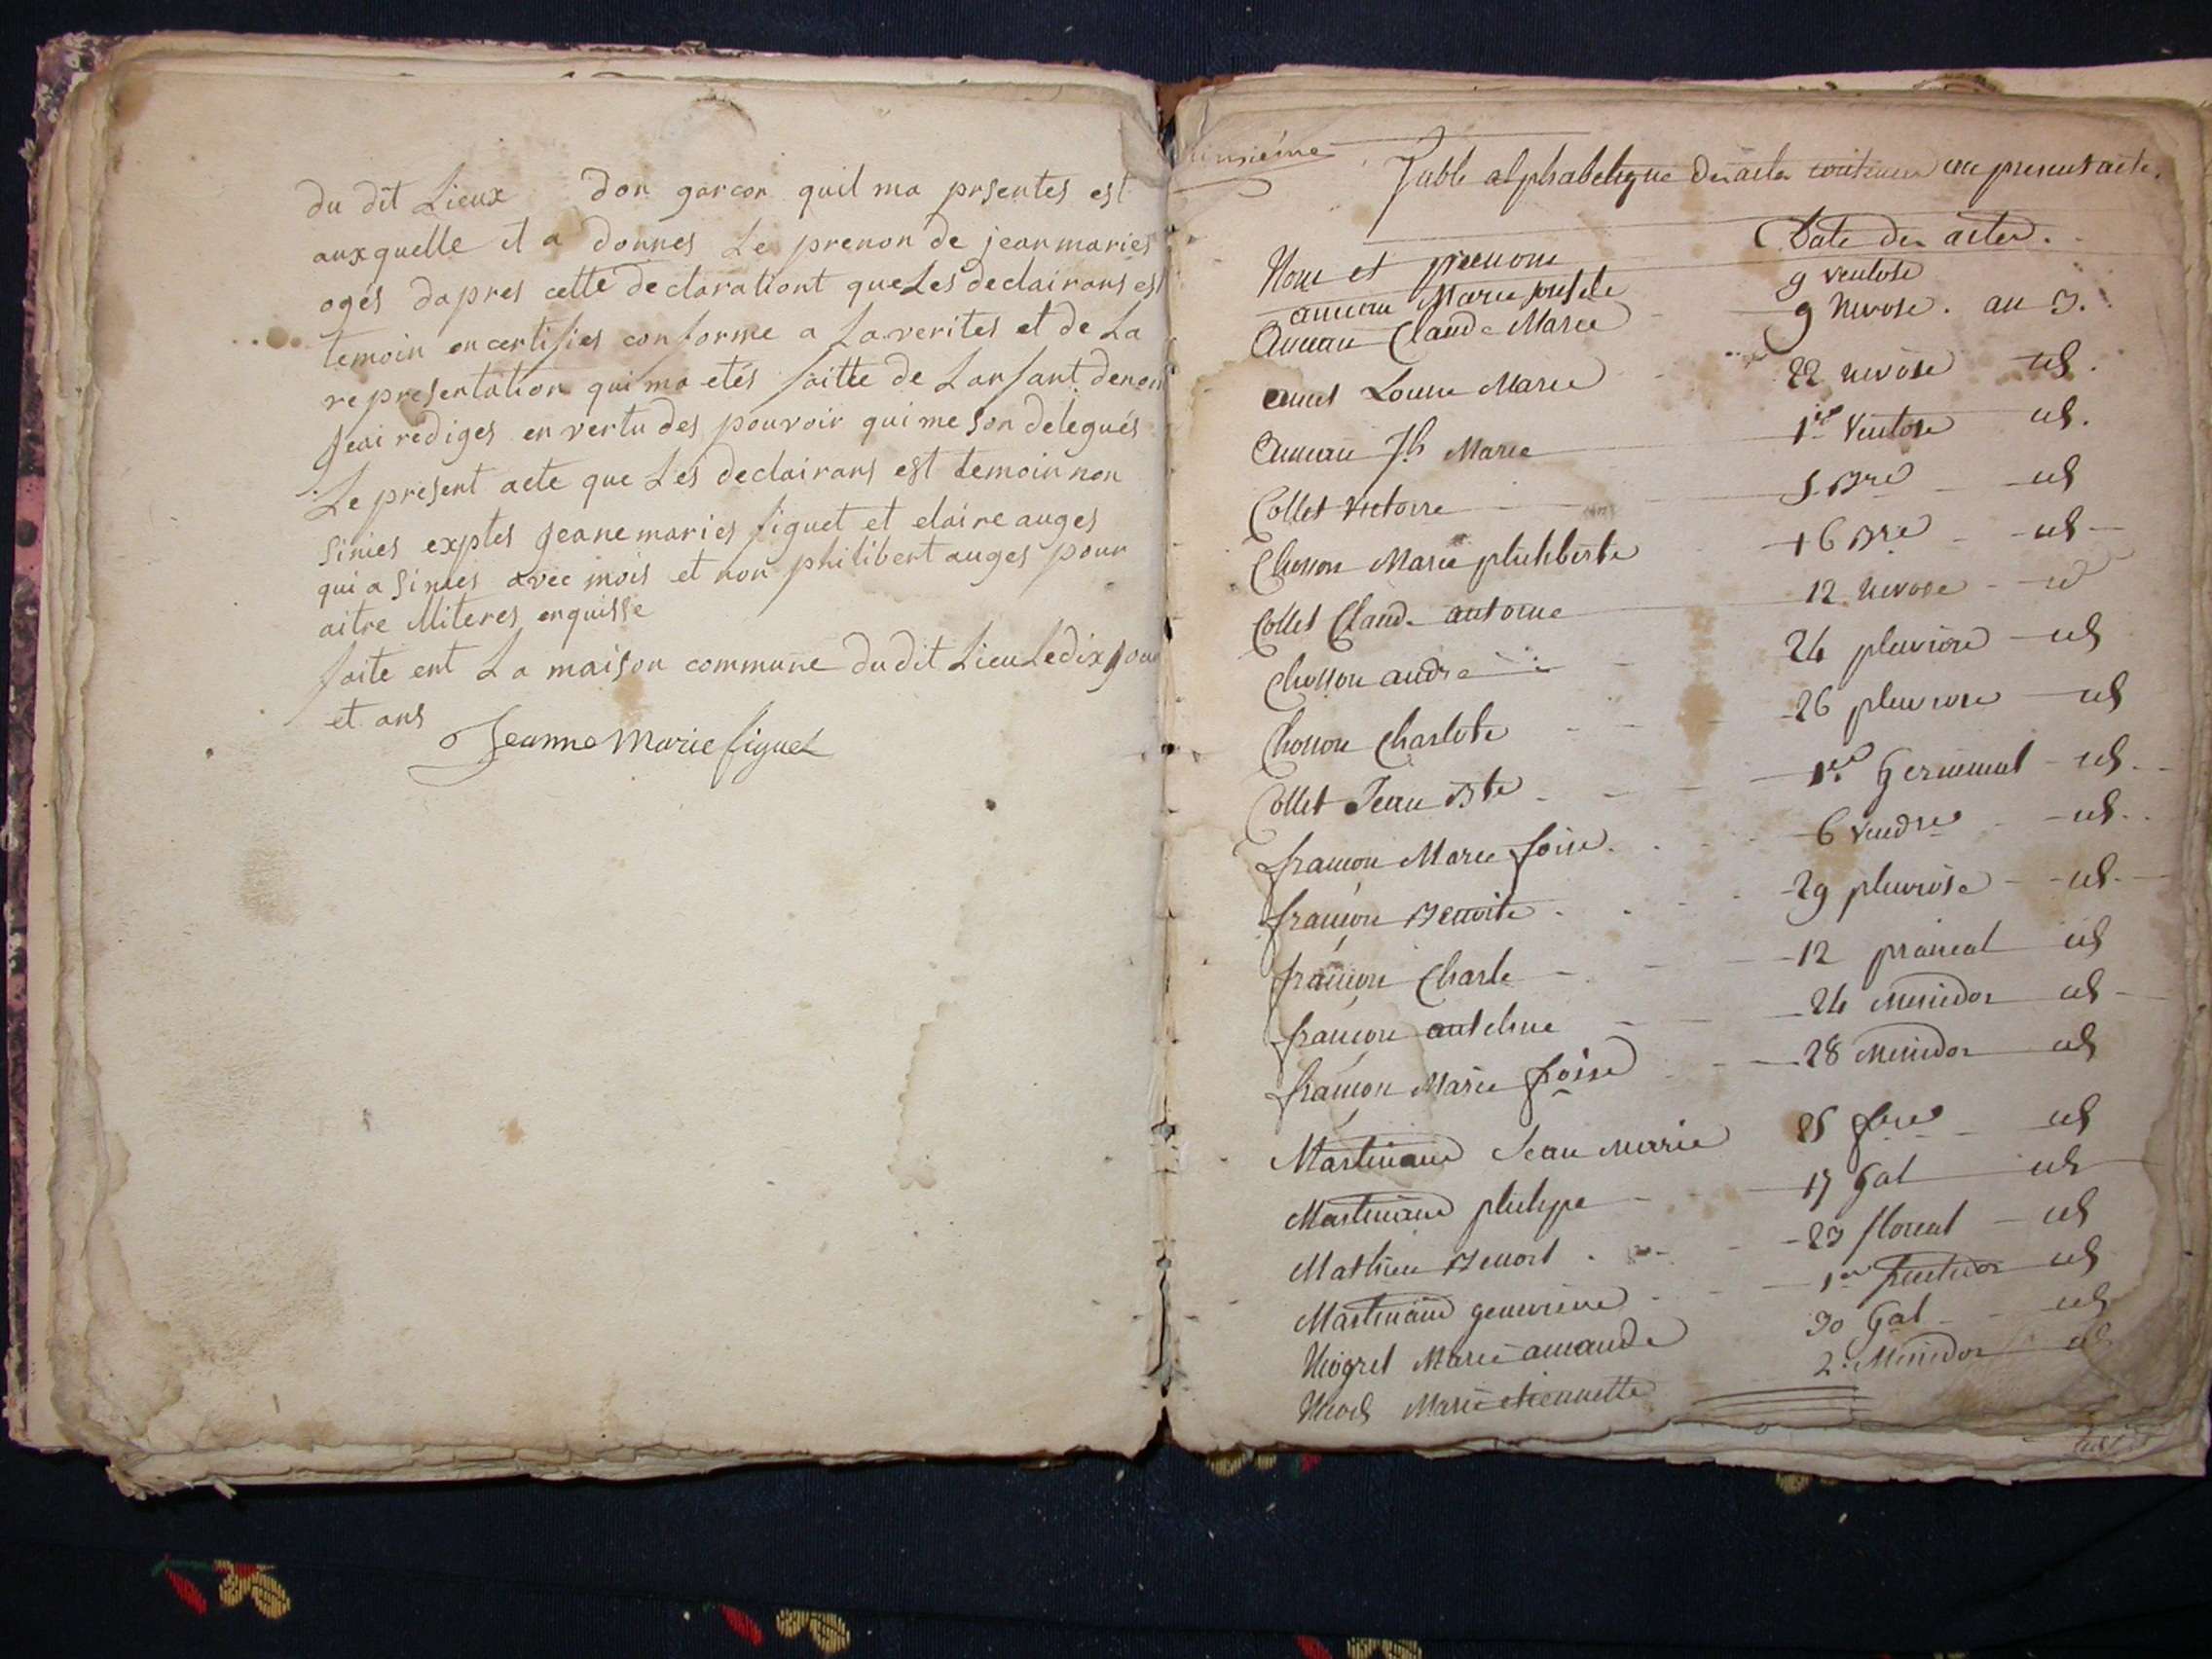 du dit Lieux don garcon quil ma prsentes est
auxquelle il a donnes Le prenon de jean maries
oges dapres cette declarationt que Les declairans est
temoin on certifies conforme a La verites et de La
representation qui ma etés faitte de Lanfant denon
Jeai rediges en vertu des pouvoir qui me son delegués
Le present acte que Les declairans est temoin non
sinies exptes Jeane maries figuet et claire auges
qui a sinies avec mois et non philibert auges pour
aitre Miteres enquisse
faite ent La maison commune du dit Lieu Le dix jour
et ans
Jeanne Marie figuet
Table alphabetique des actes contenues
Nom et prenoms Date des actes.
Marie 9 ventose
Claude Marie 9 Nivose. an 3.
Louise Marie 22 nivose id.
Jh Marie 1er Ventose id.
Collet Victoire 5 Bre id
Chosson Marie philiberte 16 Bre id
Collet Claude antoine 12 Nivose id
Chosson andre 24 pluviose id
Chosson Charlote 26 pluviose id
Collet Jean Bte 1er Germinal id.
françon Marie foise. 6 Vendre id.
françon Benoite. 29 pluviose id.
françon Charle 12 prairial id
françon antelme 24 Messidor id
françon Marie froise 28 Messidor id
Martinand Jean Marie 25 fre id
Martinand philipe 17 Gal id
Mathieu Benoit. 23 floreal id
Martinand genevieve 1er fructidor id
Niogret Marie amande 30 Gal id
Marie etiennette 2. Messidor id